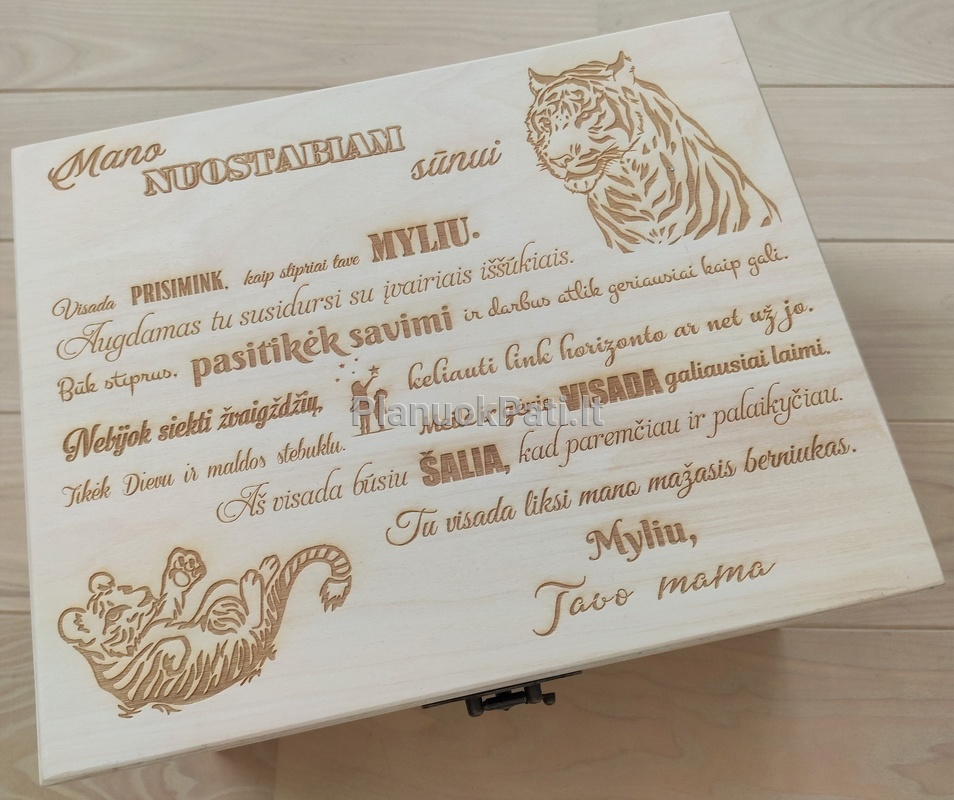 Mano NUOSTABIAM sūnui
Visada PRISIMINK, kaip stipriai tave MYLIU.
Augdamas tu susidursi su įvairiais iššūkiais.
Būk stiprus, pasitikėk savimi ir darbus atlik geriausiai kaip gali.
Nebijok siekti žvaigždžių, keliauti link horizonto ar net už jo.
Tikėk Dievu ir maldos stebuklu. Meilė ir gėris VISADA galiausiai laimi.
Aš visada būsiu ŠALIA, kad paremčiau ir palaikyčiau.
Tu visada liksi mano mažasis berniukas.
Myliu,
Tavo mama
PlanuokPati.lt